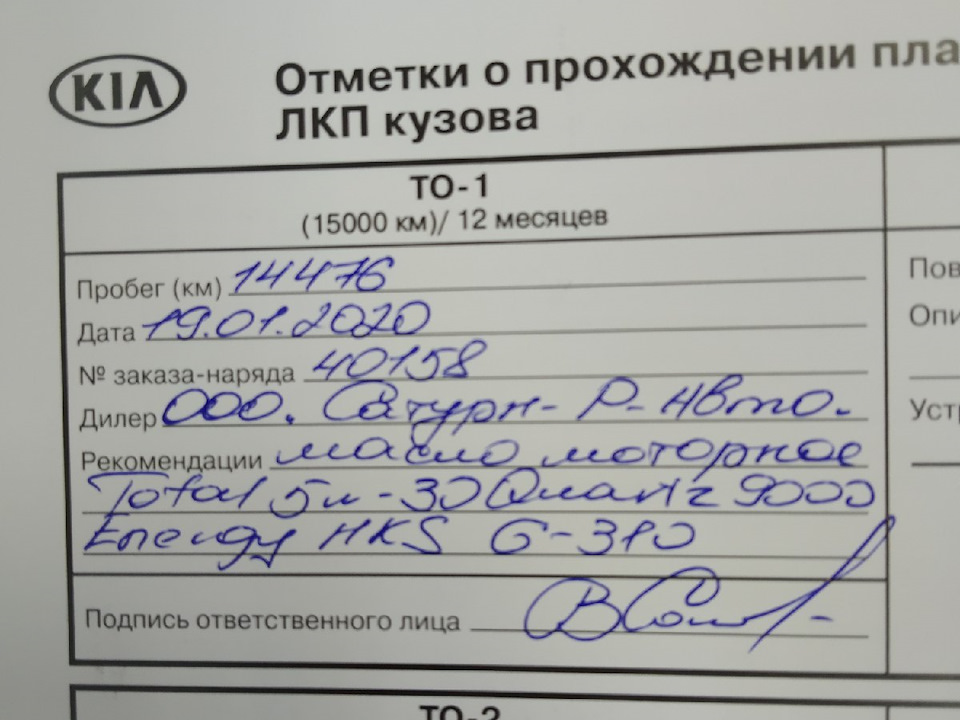 KIA
Отметки о прохождении пла
ЛКП кузова
ТО-1
(15000 км)/ 12 месяцев
Пробег (км) 14476
Дата 19.01.2020
№ заказа-наряда 40158
Дилер ООО. Сатурн-Р-Авто.
Рекомендации масло моторное
Total 5w-30 Quartz 9000
Energy HKS G-310
Подпись ответственного лица
ТО-2
Пов
Опи
Уст